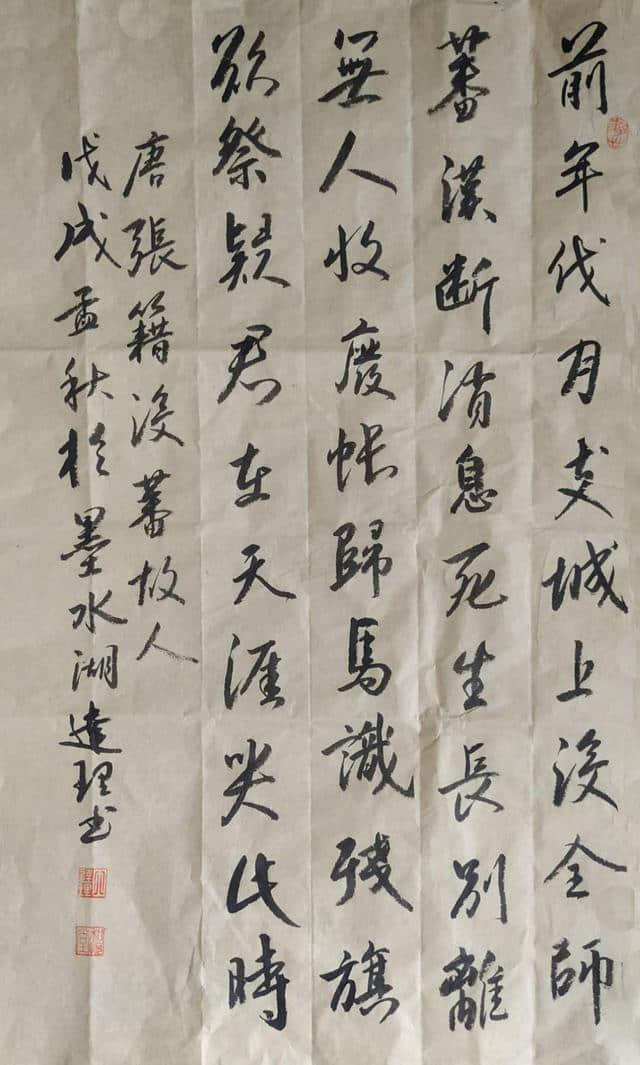 前年伐月支城上没全師
蕃漢断消息死生長別離
無人收廢帳歸馬識殘旗
欲祭疑君在天涯哭此時
唐張籍没蕃故人
戊戌孟秋於墨水湖達理书